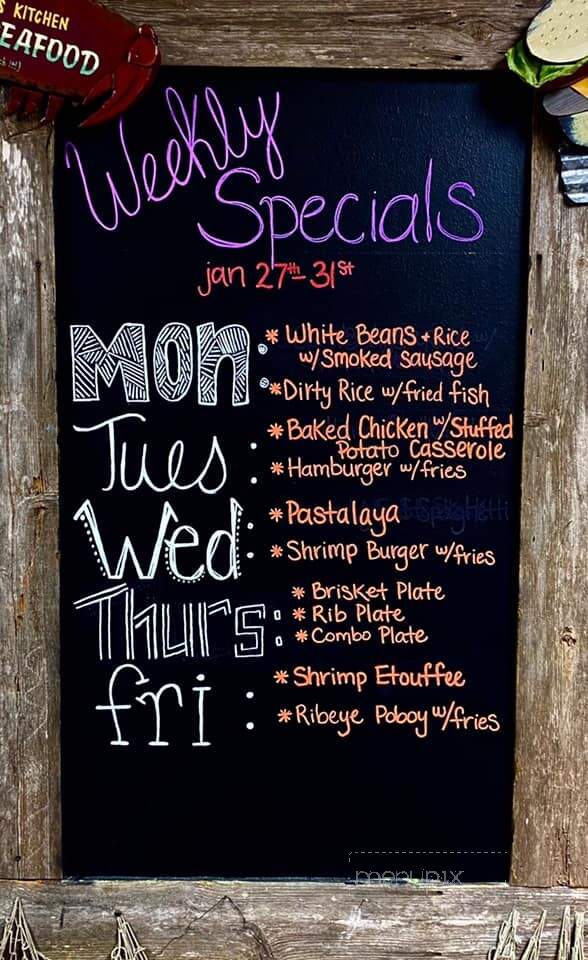 S KITCHEN
EAFOOD
Weekly
Specials
jan 27th-31st
Mon:
* White Beans + Rice
w/Smoked sausage
* Dirty Rice w/fried fish
Tues:
* Baked Chicken w/Stuffed
Potato Casserole
* Hamburger w/fries
Wed:
* Pastalaya
* Shrimp Burger w/fries
Thurs:
* Brisket Plate
* Rib Plate
* Combo Plate
fri:
* Shrimp Etouffee
* Ribeye Poboy w/fries
menupix